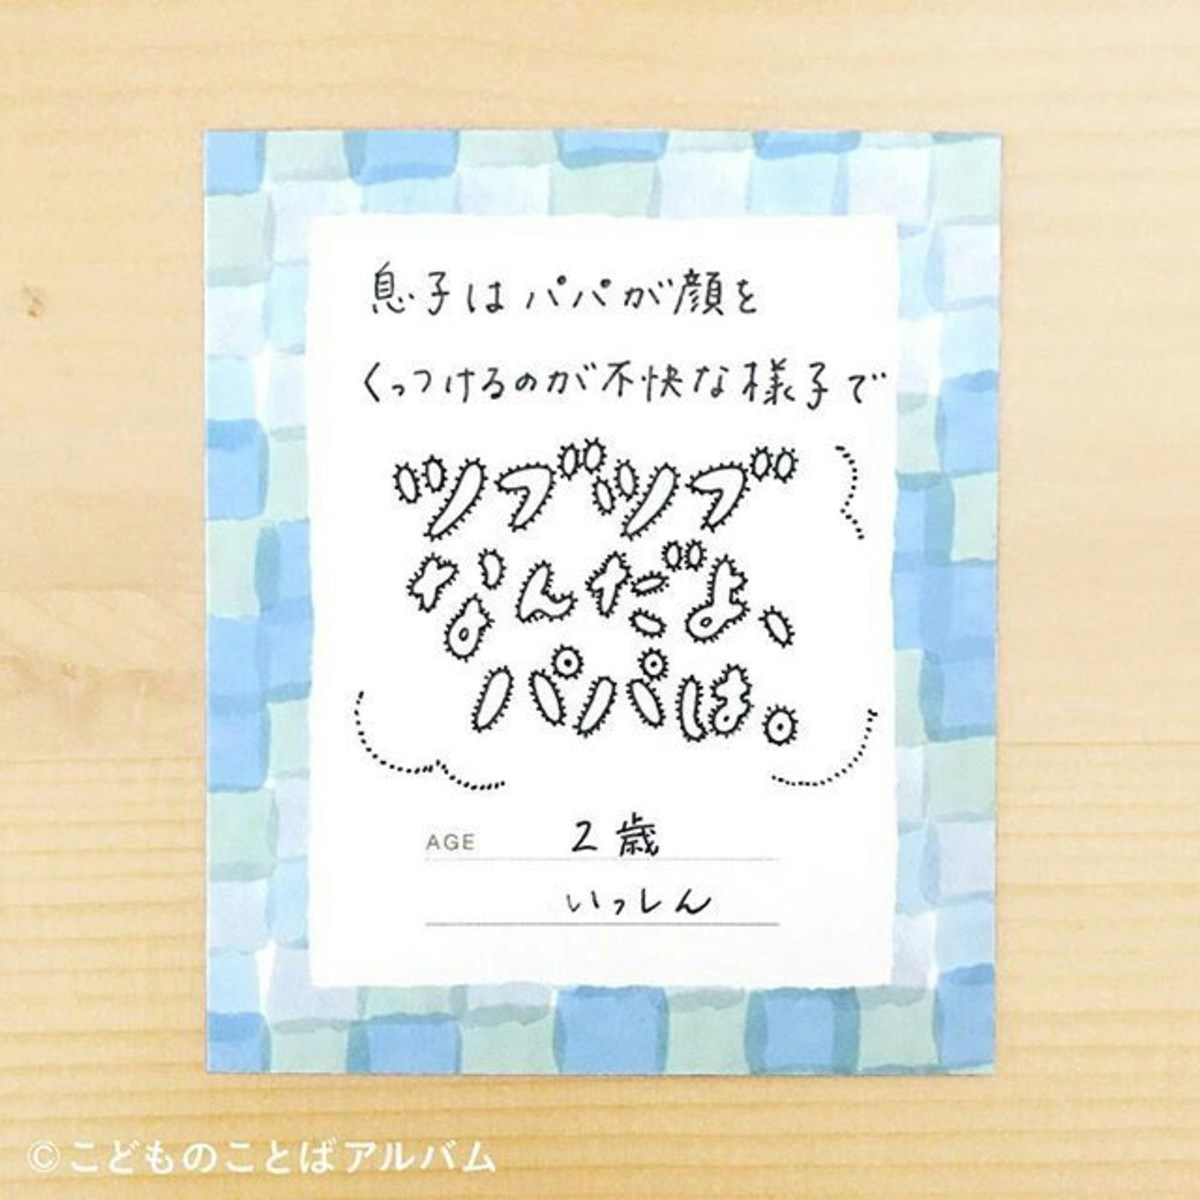 息子はパパが顔を
くっつけるのが不快な様子で
ツブツブ
なんだよ、
パパは。
AGE 2歳
いっしん
©こどものことばアルバム